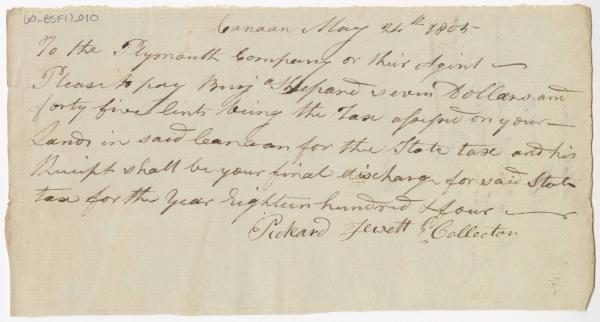 60-BSF17.010
Canaan May 24th 1805
To the Plymouth Company or thier Agint
Please to pay Binj a Shepard sevin Dollars and
forty five Cents being the Tax assessd on your
Lands in said Canaan for the State tax and his
Receipt shall be your final discharge for said State
tax for the Year Eightein hundred & four
Pickard Jewett Collector